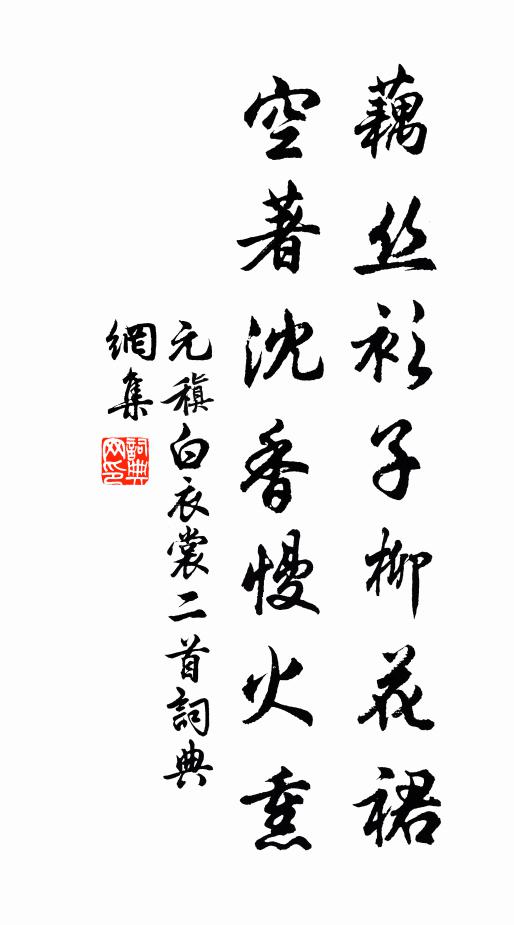 藕丝衫子柳花裙
空著沈香慢火熏
元稹白衣裳二首詞典
網集
詞典网印